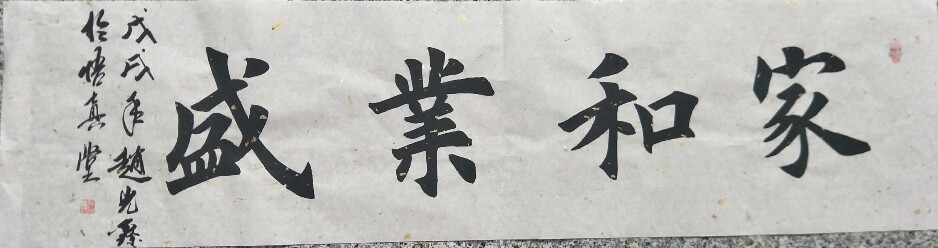 家和業盛
戊戌年趙光
於悟真堂